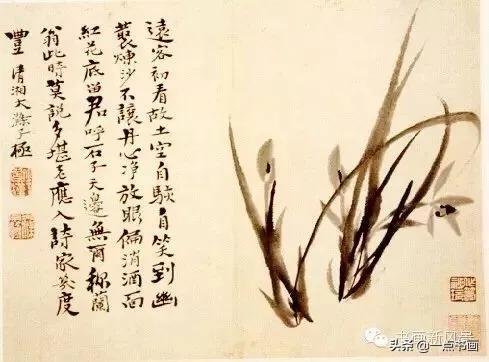 遠客初看故土空自駭自笑到幽
煉沙不讓丹心淨放眼偏消酒面
紅花底留君呼石子天邊無爾称蘭
翁此時莫說多堪老應入詩家幾度
豐 清湘大滌子極
书画新风景
头条 @一点书画